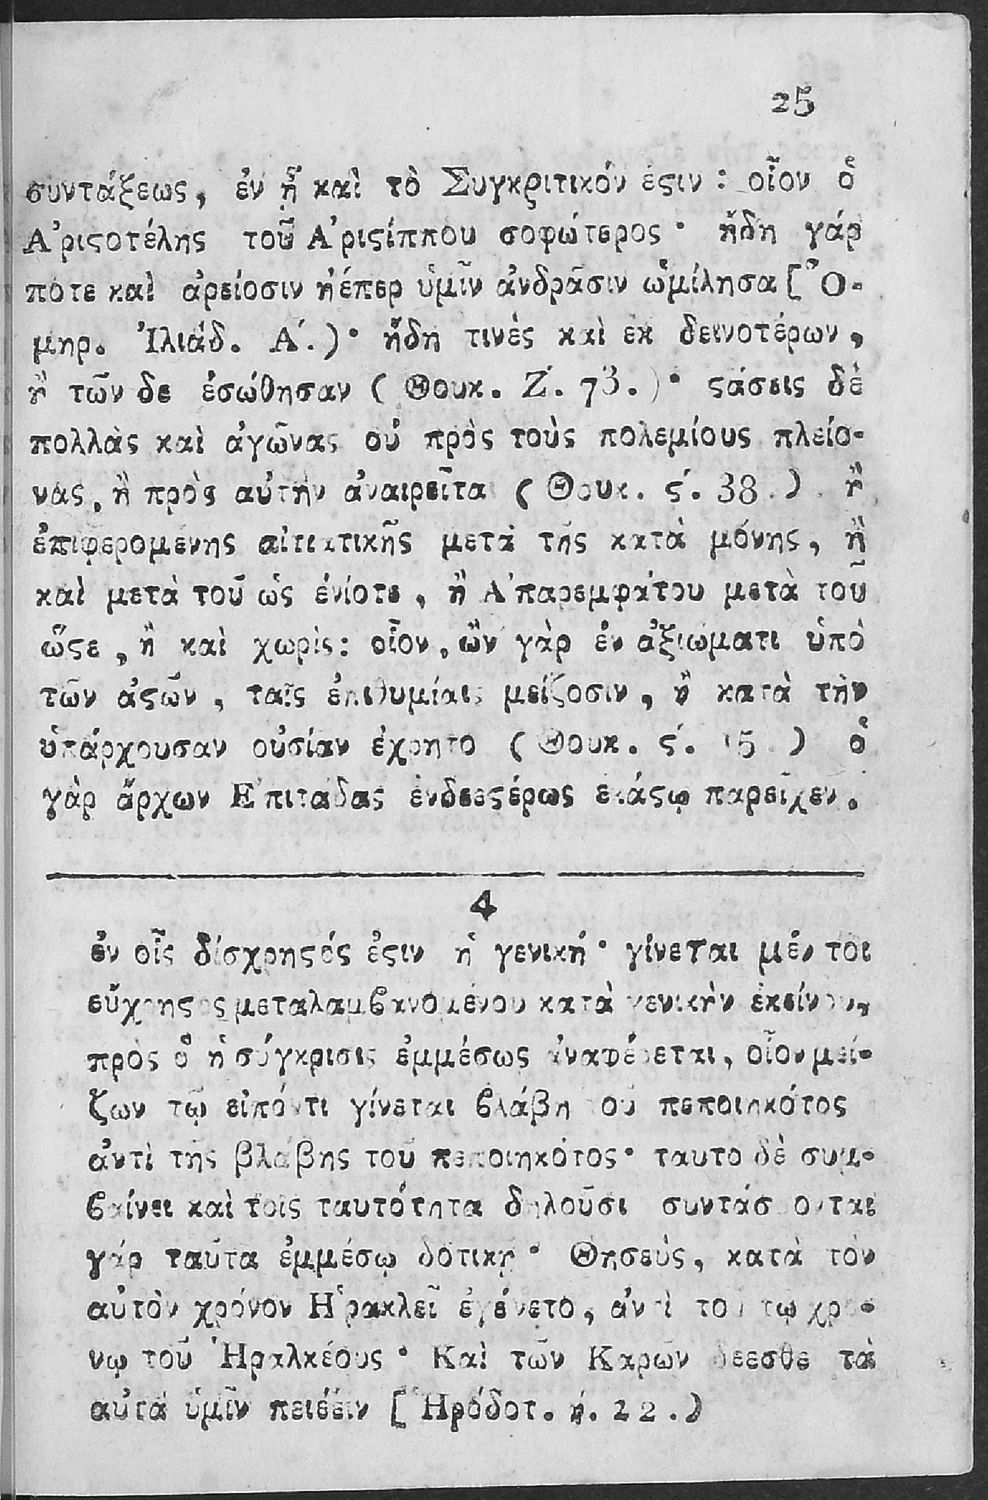 25
συντάξεως, ἐν ᾗ καὶ τὸ Συγκριτικόν ἐϛιν : οἷον ὁ
Α᾿ριϛοτέλης τοῦ Α᾿ριϛίππου σοφώτερος · ἤδη γάρ
ποτε καὶ ἀρείοσιν ἠέπερ ὑμῖν ἀνδράσιν ὡμίλησα [Ὁ-
μηρ. Ἰλιάδ. Α΄.) · ἤδη τινὲς καὶ ἐκ δεινοτέρων,
ἢ τῶν δε ἐσώθησαν ( Θουκ. Ζ΄. 73. ) · ϛάσεις δὲ
πολλὰς καὶ ἀγῶνας οὐ πρὸς τοὺς πολεμίους πλείο-
νας, ἢ πρὸς αὐτὴν ἀναιρεῖται ( Θουκ. ϛ΄. 38. ) ἢ
ἐπιφερομένης αἰτιατικῆς μετὰ τῆς κατὰ μόνης, ἢ
καὶ μετὰ τοῦ ὡς ἐνίοτε, ἢ Α᾿παρεμφάτου μετὰ τοῦ
ὥϛε, ἢ καὶ χωρὶς : οἷον, ὢν γὰρ ἐν ἀξιώματι ὑπὸ
τῶν ἀϛῶν, ταῖς ἐπιθυμίαις μείζοσιν, ἢ κατὰ τὴν
ὑπάρχουσαν οὐσίαν ἐχρῆτο ( Θουκ. ϛ΄. 15. ) ὁ
γὰρ ἄρχων Ε᾿πιτάδας ἐνδεεϛέρως ἑκάϛῳ παρεῖχεν.
4
ἐν οἷς δύσχρηϛός ἐϛιν ἡ γενική · γίνεται μέν τοι
εὔχρηϛος μεταλαμβανομένου κατὰ γενικὴν ἐκείνου,
πρὸς ὃ ἡ σύγκρισις ἐμμέσως ἀναφέρεται, οἷον μεί-
ζων τῷ εἰπόντι γίνεται βλάβη τοῦ πεποιηκότος
ἀντὶ τῆς βλάβης τοῦ πεποιηκότος · ταυτο δὲ συμ-
βαίνει καὶ τοῖς ταυτότητα δηλοῦσι συντάσσονται
γὰρ ταῦτα ἐμμέσῳ δοτικῇ · Θησεὺς, κατὰ τὸν
αὐτὸν χρόνον Η῾ρακλεῖ ἐγένετο, ἀντὶ τοῦ τῳ χρό-
νῳ τοῦ Ἡραλκέους · Καὶ τῶν Καρῶν δέεσθε τὰ
αὐτὰ ὑμῖν πείθειν [ Ἡρόδοτ. η. 22.)